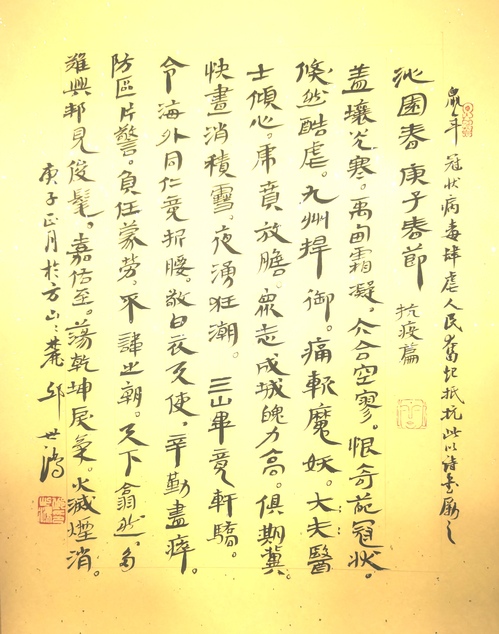 鼠年 冠狀病毒肆虐人民奮起抵抗此以诗勵之
沁園春 庚子春節 抗疫篇
盖壤光寒。禹甸霜凝。六合空寥。恨奇葩冠狀。
倏然酷虐。九州捍御。痛斬魔妖。大夫醫
士傾心。虎賁放膽。眾志成城魄力高。俱期冀。
快晝消積雪。夜湧狂潮。三山畢竟軒驕。
令海外同仁竟折腰。敬白衣天使。辛勤盡瘁。
防區片警。負任蒙勞。不諱之朝。天下翕然。多
難興邦見俊髦。嘉佑至。蕩乾坤戾氣。火滅煙消。
庚子正月於方山之麓 邱世鴻